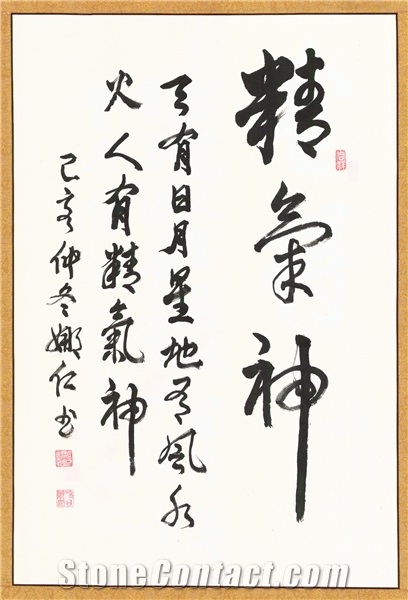 精氣神
天有日月星地有風水
火人有精氣神
己亥仲冬娜仁书
StoneContact.com